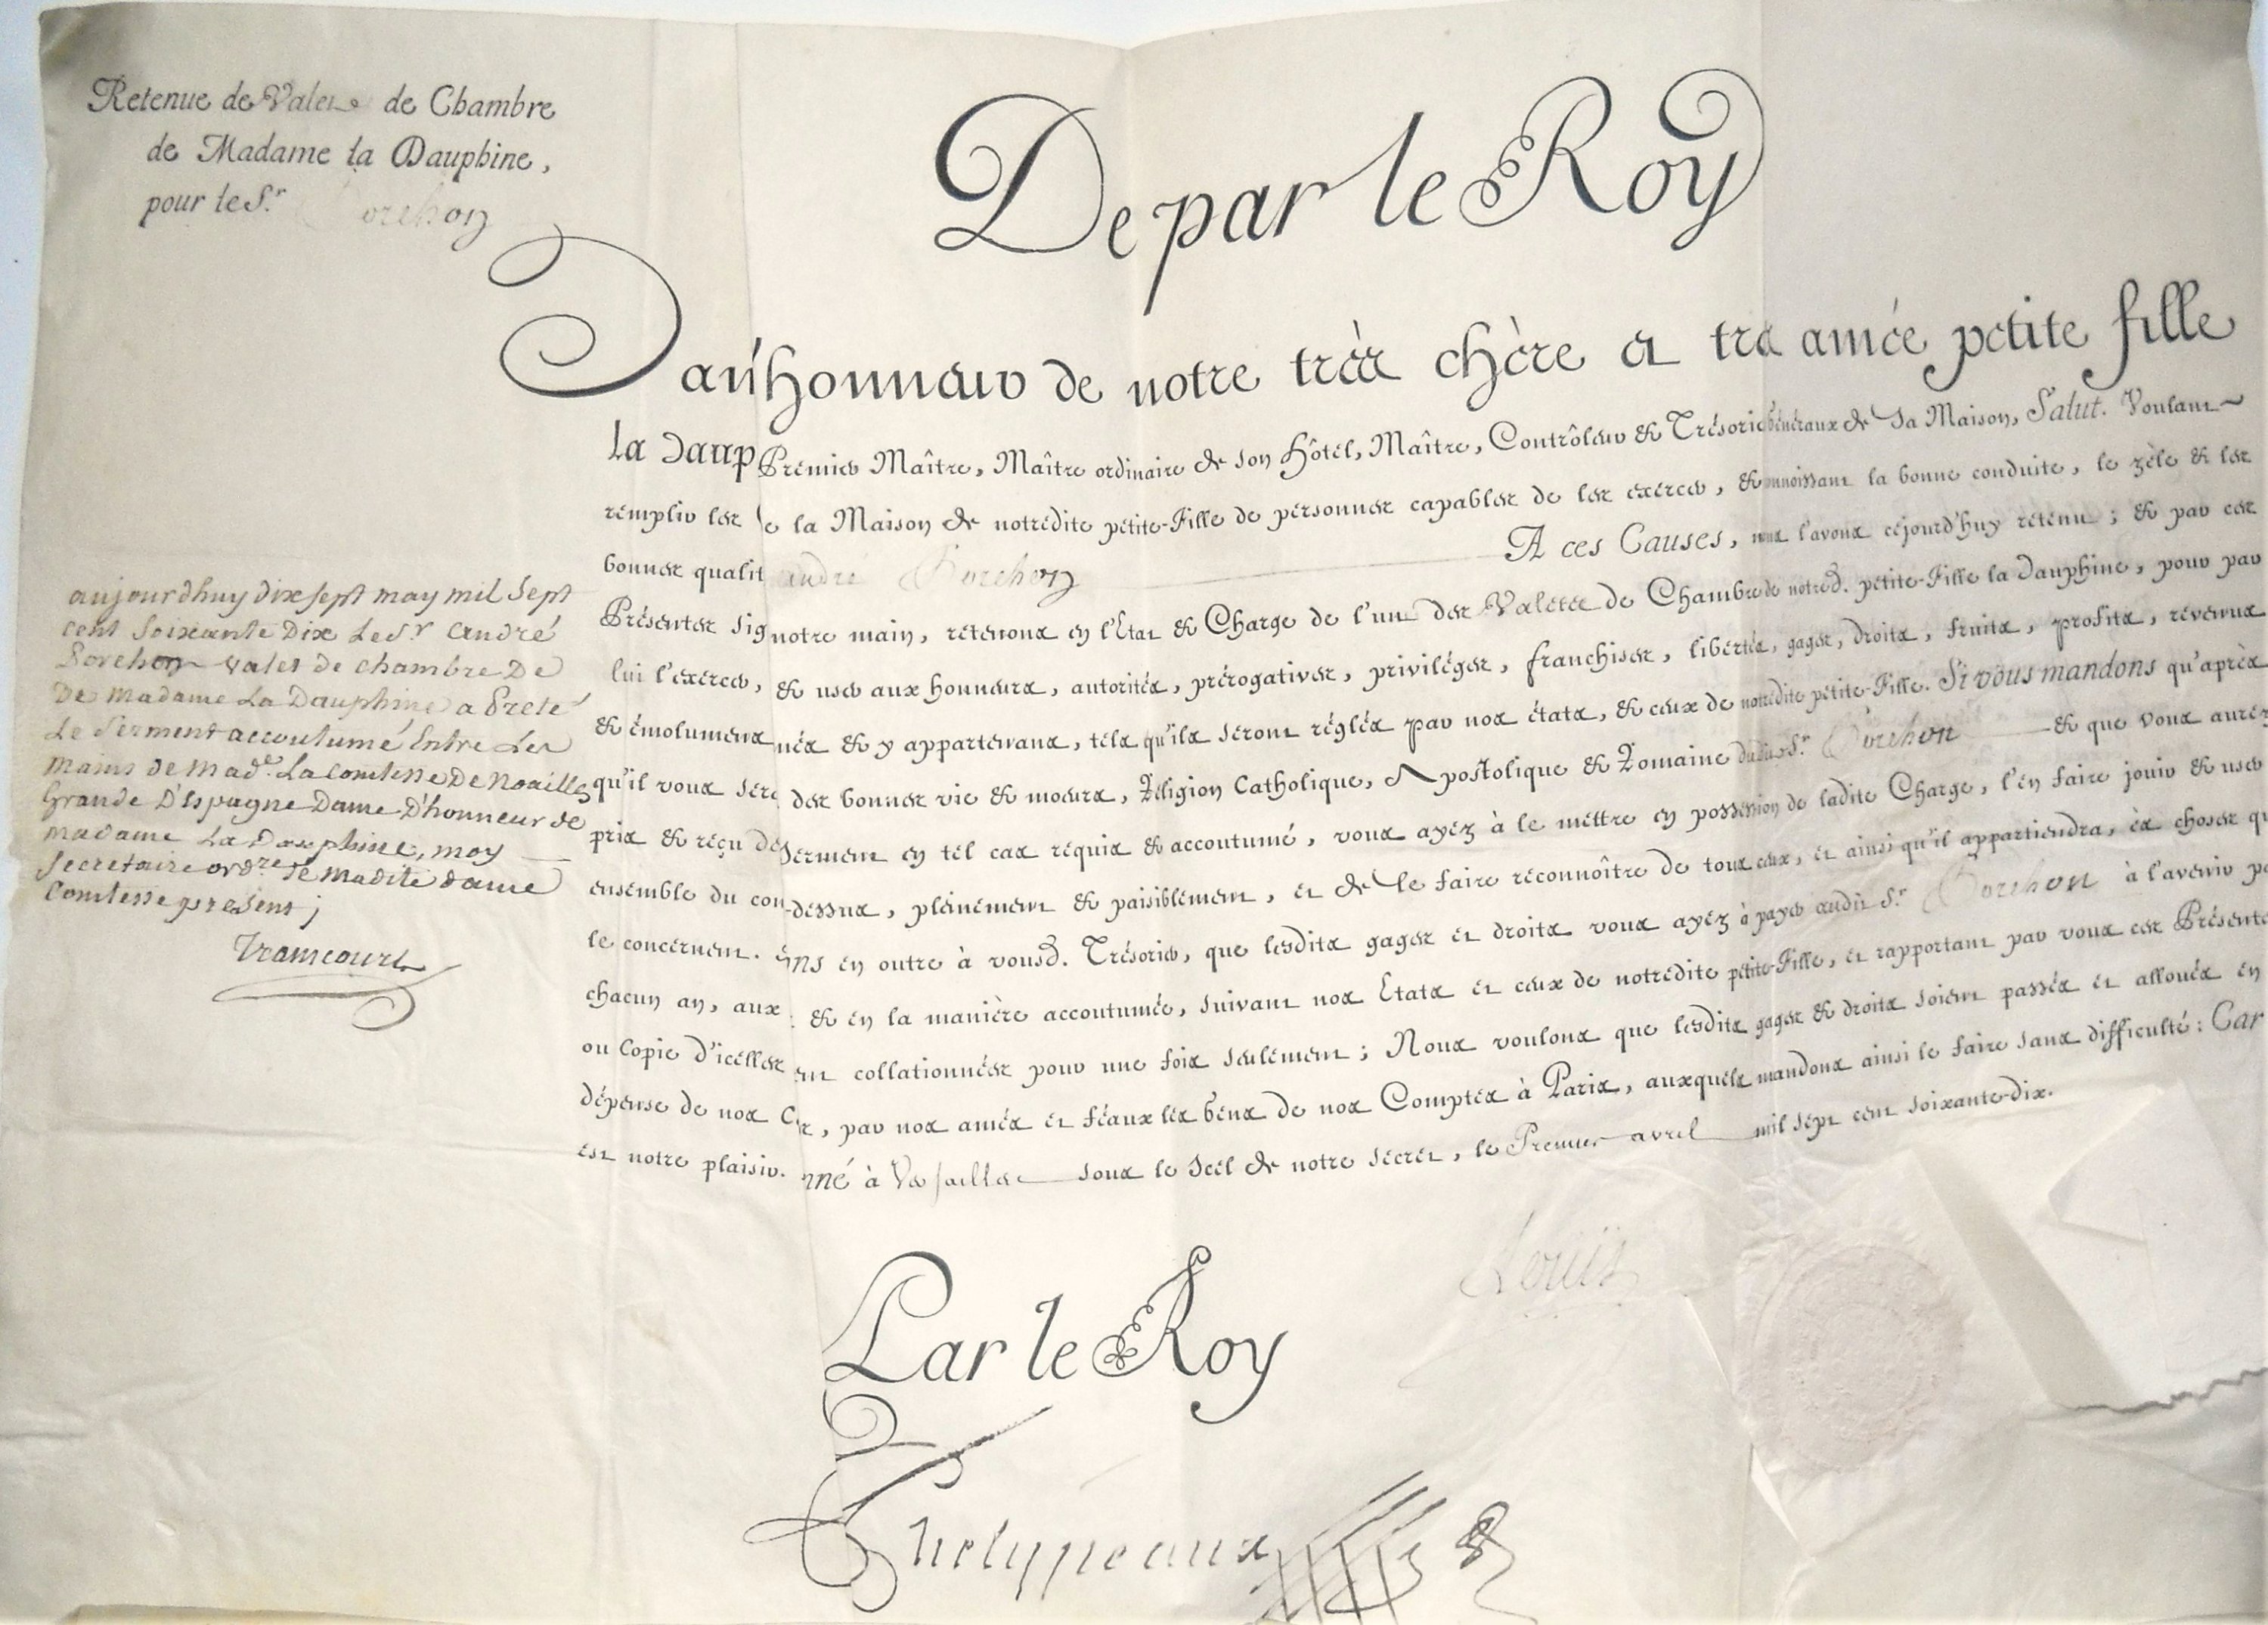 Retenue de Valet de Chambre
de Madame la Dauphine,
pour le S.r Porchon
De par le Roy
D'honneur de notre très chère et très amée petite fille
la Daup Premier Maître, Maître ordinaire de son Hôtel, Maître, Contrôleur & Trésoriers Généraux de sa Maison, Salut. Voulant
remplir les de la Maison de notredite petite-Fille de personnes capables de les exercer, & connoissant la bonne conduite, le zèle & les
bonnes qualit andré Porchon A ces Causes, nous l'avons cejourd'huy retenu ; & par ces
Présentes sig notre main, retenons en l'Etat & Charge de l'un des Valets de Chambre de notred. petite-Fille la Dauphine, pour par
lui l'exercer, & user aux honneurs, autorités, prérogatives, privilèges, franchises, libertés, gages, droits, fruits, profits, revenus
& émolumens nés & y appartenans, tels qu'ils seront réglés par nos états, & ceux de notredite petite-Fille. Si vous mandons qu'après
qu'il vous sera des bonnes vie & moeurs, Religion Catholique, Apostolique & Romaine dudit S.r Porchon & que vous aurez
pris & reçu de serment en tel cas requis & accoutumé, vous ayez à le mettre en possession de ladite Charge, l'en faire jouir & user
ensemble du con-dessus, pleinement & paisiblement, et de le faire réconnoître de tous ceux, et ainsi qu'il appartiendra, ès choses qui
le concernent. ns en outre à vousd. Trésorier, que lesdits gages et droits vous ayez à payer audit S.r Porchon à l'avenir par
chacun an, aux & en la manière accoutumée, suivant nos Etats et ceux de notredite petite-Fille, et rapportant par vous ces Présentes
ou Copie d'icelles ent collationnées pour une fois seulement ; Nous voulons que lesdits gages & droits soient passés et alloués en
dépense de nos C , par nos amés et féaux les Gens de nos Comptes à Paris, auxquels mandons ainsi le faire sans difficulté : Car
est notre plaisir. nné à Versailles sous le Scel de notre secret, le Premier avril mil sept cent soixante-dix.
aujourdhuy dix sept may mil sept
cent soixante Dix Le S.r andré
Porchon valet de chambre De
De Madame La Dauphine a Preté
Le Serment accoutumé Entre Les
mains de Mad.e La Comtesse De Noailles
Grande D'Espagne Dame D'honneur de
madame La Dauphine, moy
Secretaire ord.re de Madite dame
Comtesse present ;
Louis
Par le Roy
Phelypeaux